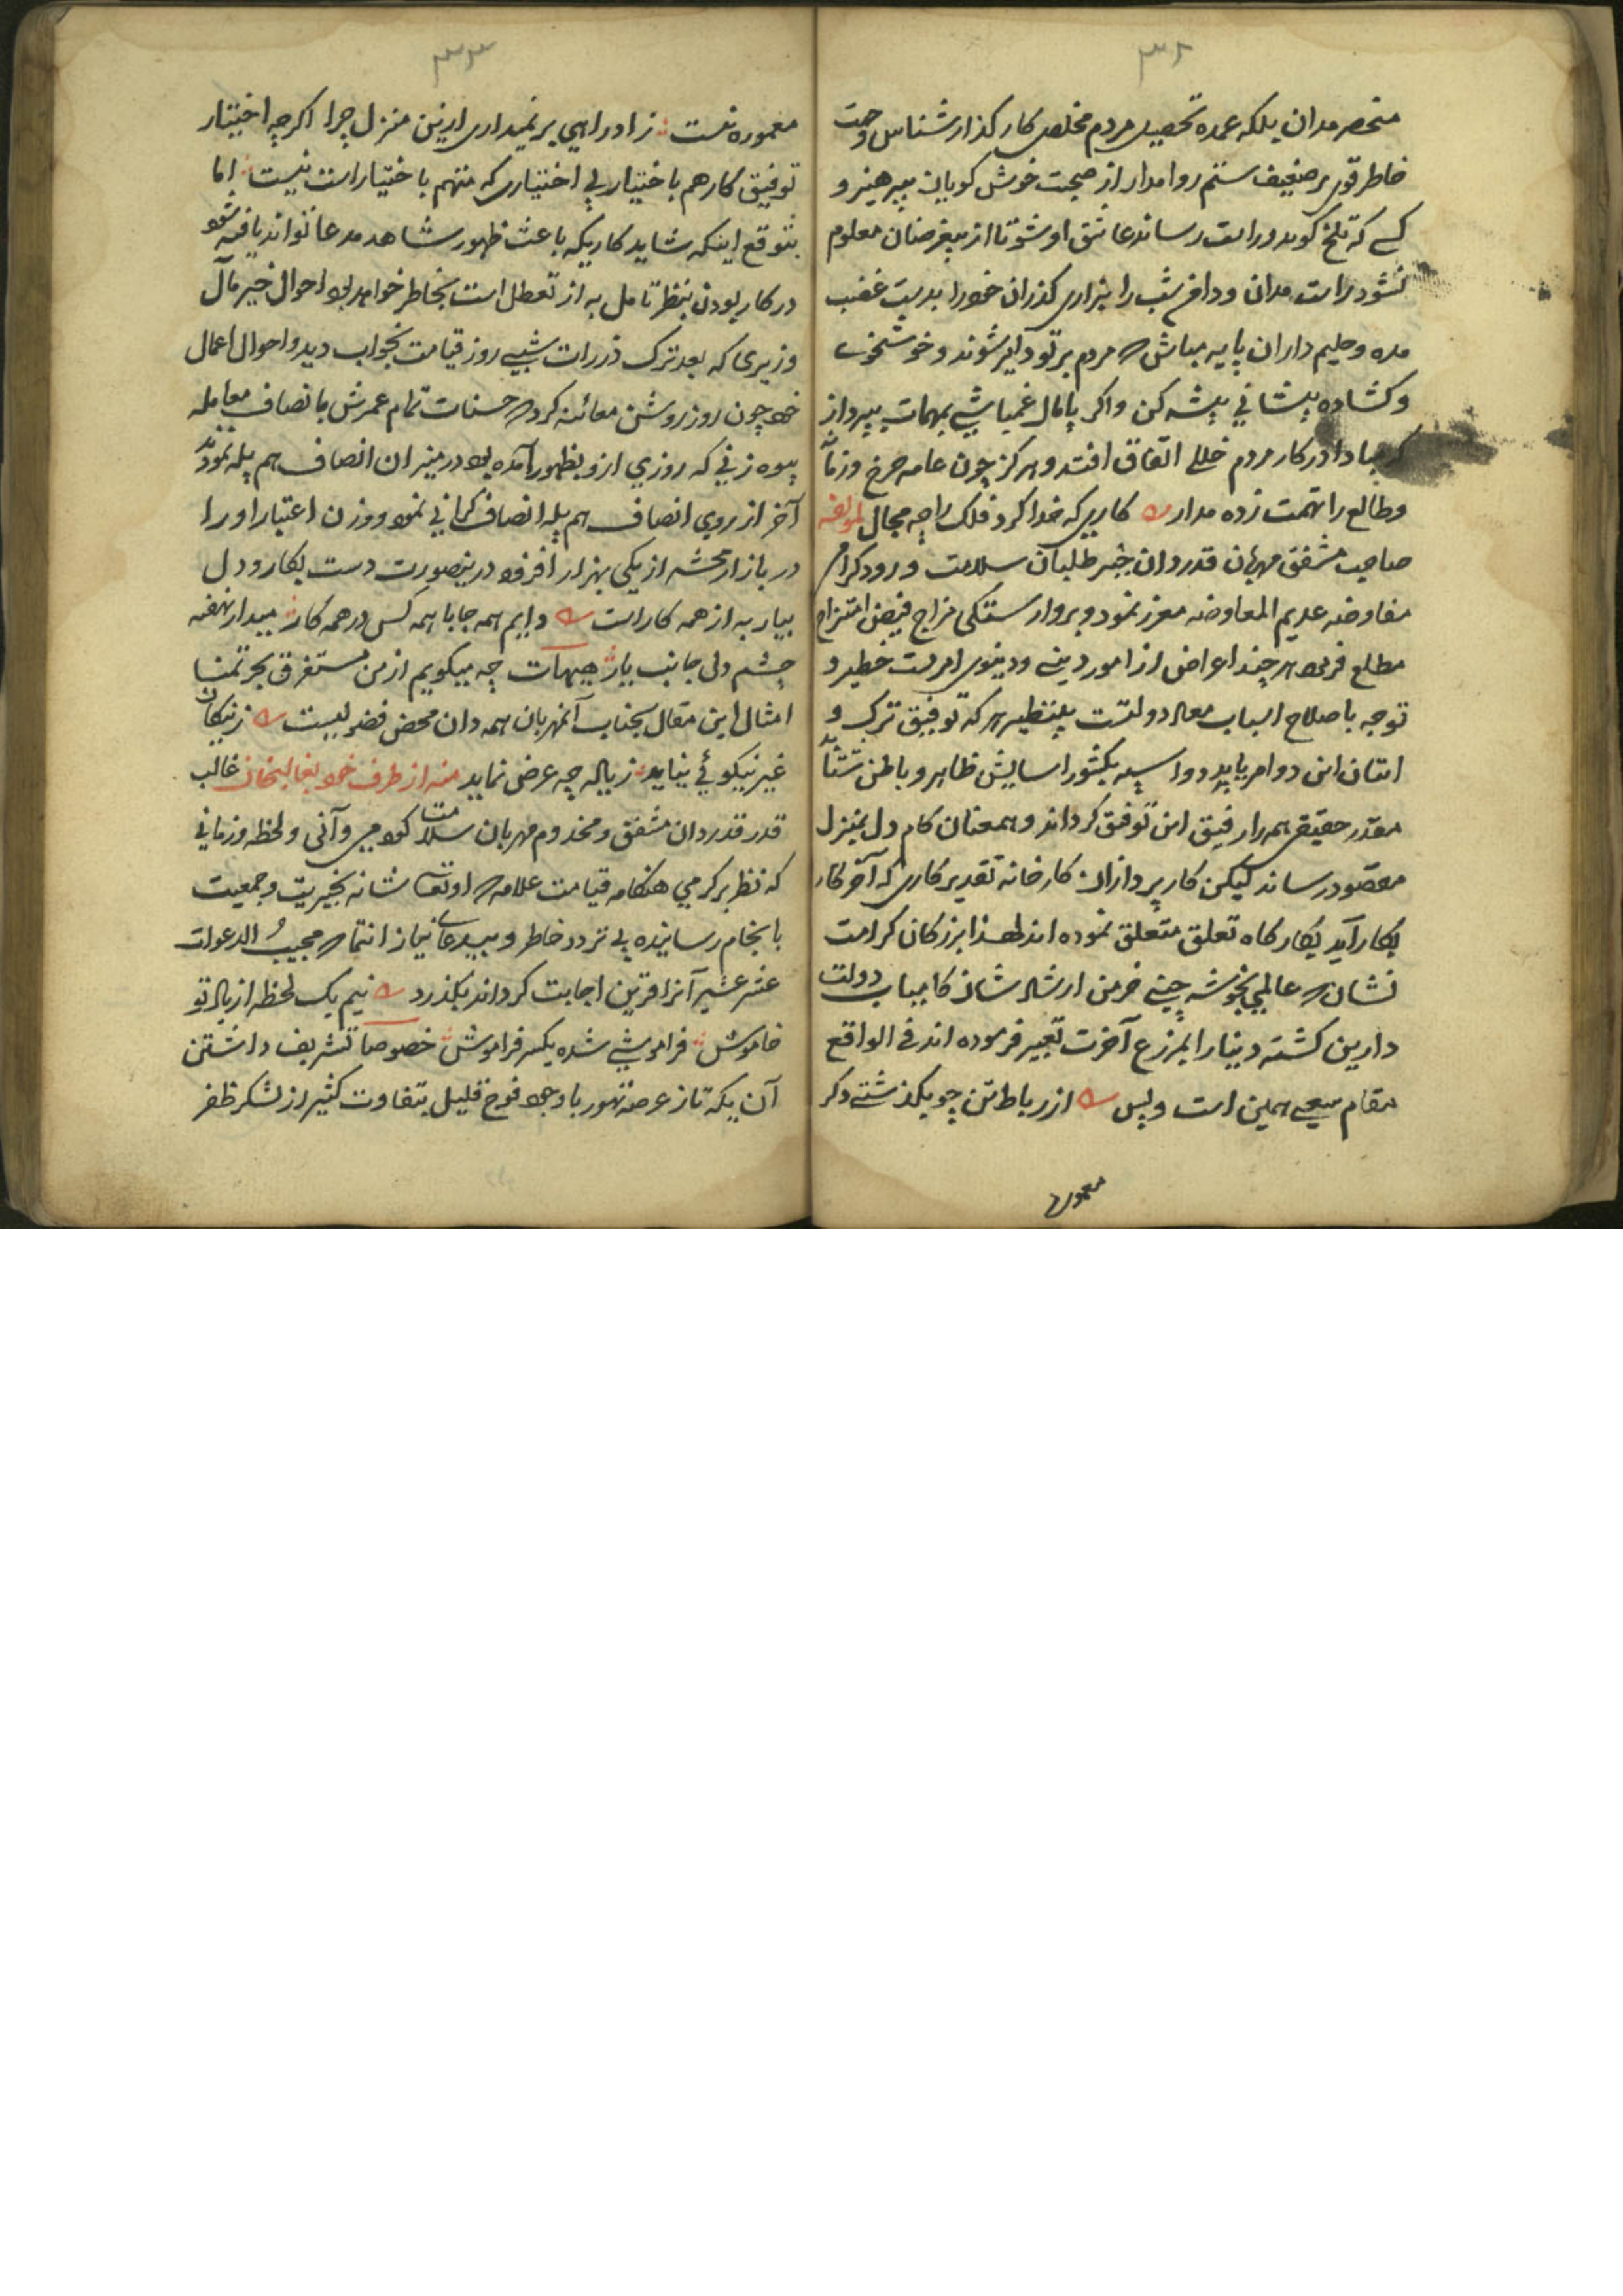 ۳۲
منحصر مدان بلکه عمده تحصیل مردم مخلص کار کذار شناس و جهت
خاطر قوی بر ضعیف ستم روا مدار از صحبت خوش کویان بپرهیز و
کسے که تلخ کوید و راست رساند عاشق او شو تا از بیغرضان معلوم
نشود راست مدان و دافرشب را بزاری کذران خود را بدست غضب
مده و حلیم داران پایه مباش که مردم بر تو دلیر شوند و خوشخوی
و کشاده پیشانی پیشه کن واکر پامال غم باشے بمهمات بپرداز
که مبادا در کار مردم خللے اتفاق افتد و هرکز چون عامه چرخ و زمانه
و طالع را تهمت زده مدار کاری که خدا کرد فلک را چه مجال لمولفه
صاحب مشفق مهربان قدردان خیر طلبان سلامت ورود کرامی
مفاوضه عدیم المعاوضه معزز نمود و بر وارستکی مزاج فیض امتزاج
مطلع فرمود هرچند اعراض از امور دینے و دینوی امریست خطیر و
توجه باصلاح اسباب معاد دولتیست بینظیر هرکه توفیق ترک و
اتیان این دو امر یابد دو اسپه بکشور اسایش ظاهر و باطن شتابد
مقدر حقیقی همه را رفیق این توفیق کرداند و همعنان کام دل بمنزل
مقصود رساند لیکن کار پردازان کارخانه تقدیر کاری که آخر کار
بکار آید بکارکاه تعلق متعلق نموده اند لهذا بزرکان کرامت
نشان که عالمی بخوشه چینے خرمن ارشاد شان کامیاب دولت
دارین کشته دنیا را بمزرع آخرت تعبیر فرموده اند فی الواقع
مقام سعی همین است و بس از رباط تن چو بکذشتے دکر
معموره
۳۳
معموره نیست زاد راهی بر نمیداری ازین منزل چرا اکرچه اختیار
توفیق کار هم باختیار بی اختیاری که متهم باختیار است نیست اما
بتوقع اینکه شاید کاریکه باعث ظهور شاهد مدعا تواند یافته شود
در کار بودن بنظر تامل به از تعطل است بخاطر خواهد بود احوال خیر مآل
وزیری که بعد ترک وزرات شبے روز قیامت بخواب دید و احوال اعمال
خود چون روز روشن معائنه کرد که حسنات تمام عمرش بانصاف معامله
بیوه زنی که روزی ازو بظهور آمده بود در میزان انصاف هم پله نمودند
آخر از روی انصاف هم پله انصاف کرانی نمود و وزن اعتبار او را
در بازار محشر از یکی بهزار افزود درینصورت دست بکار و دل
بیار به از همه کار است دایم همه جا با همه کس در همه کار میدار نهفته
چشم دل جانب یار هیهات چه میکویم از من مستغرق بحر تمنا
امثال این مقال بجناب آنمهربان همه دان محض فضولیست ز نیکان
غیر نیکوئی نیاید زیاده چه عرض نماید منه از طرف خود بغالبخان غالب
قدر قدردان مشفق و مخدوم مهربان سلامت کود می و آنی و لحظه و زمانی
که نظر برکرمی هنکامه قیامت علامه که اوقات شانه بخیریت و جمعیت
بانجام رساینده بی تردد خاطر و بیدعای نیاز انتما که مجیب الدعوات
عشر عشیر آنرا قرین اجابت کرداند بکذرد نیم یک لحظه از یاد تو
خاموش فراموشے شده یکسر فراموش خصوصا تشریف داشتن
آن یکه تاز عرصه تهور با وجود فوج قلیل بتفاوت کثیر از لشکر ظفر